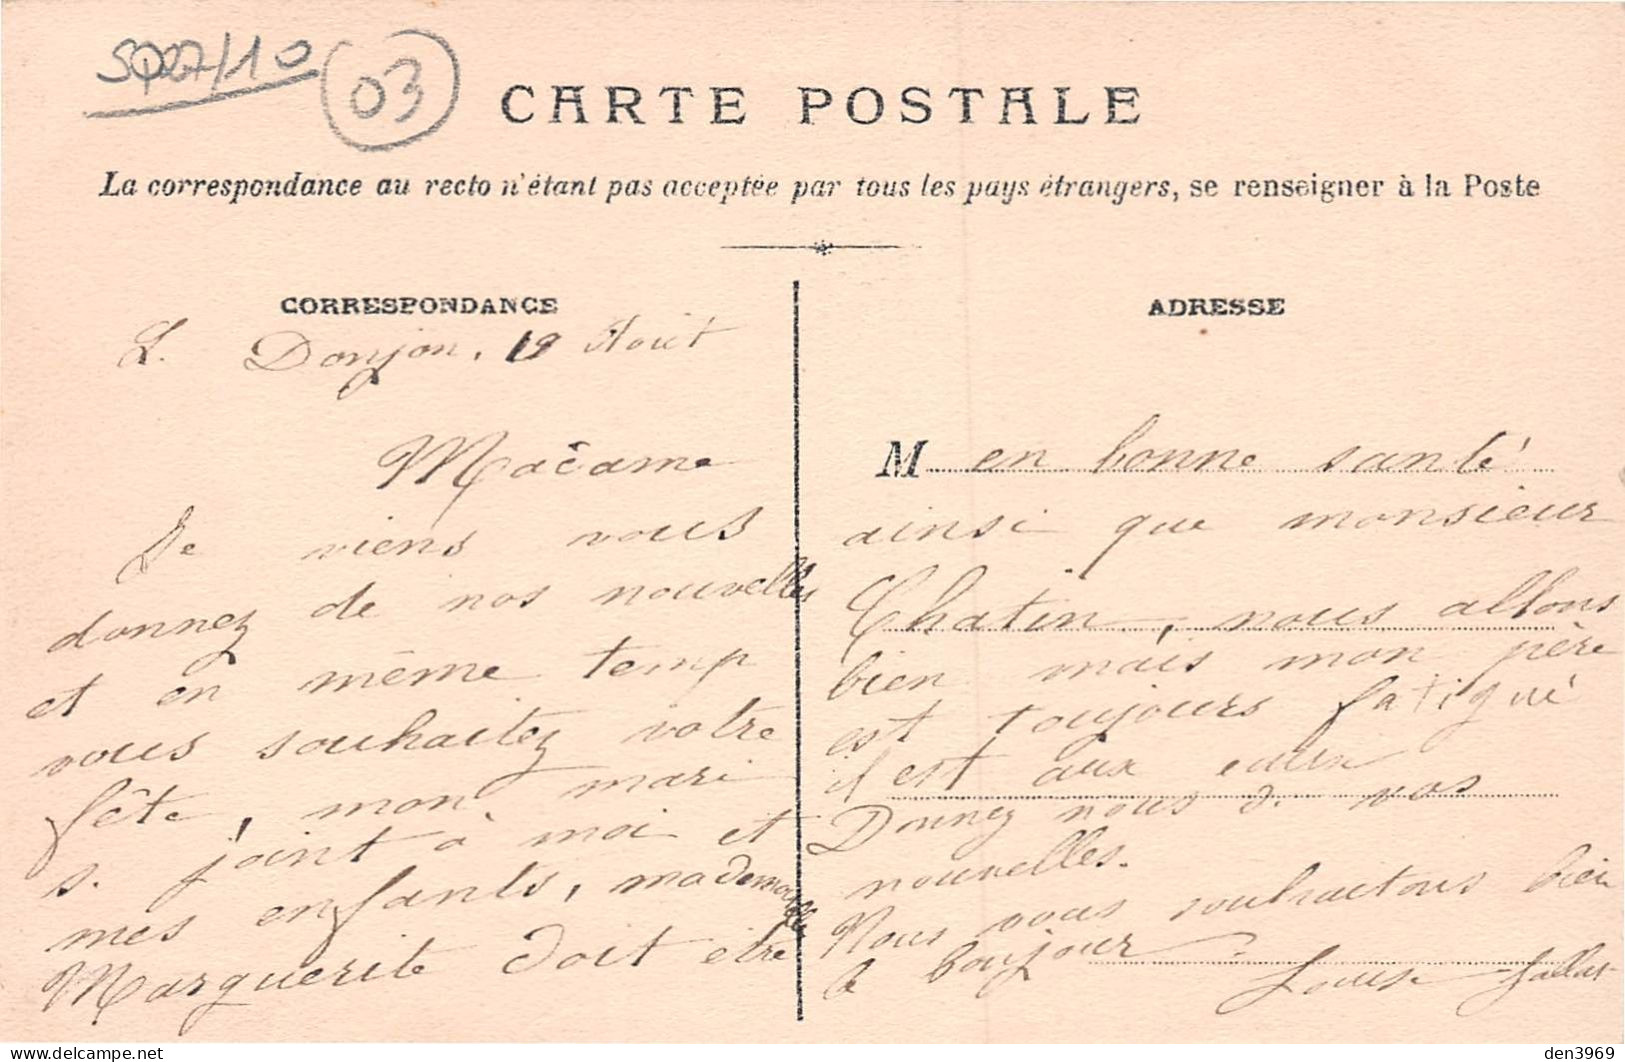 03
CARTE POSTALE
La correspondance au recto n'étant pas acceptée par tous les pays étrangers, se renseigner à la Poste
CORRESPONDANCE
L. Donjon, 19 Août
Madame
Je viens vous
donnez de nos nouvelles
et en même temp
vous souhaitez votre
fête, mon mari
s. joint à moi et
mes enfants, mademoiselle
Marguerite doit être
ADRESSE
M en bonne santé
ainsi que monsieur
Chatin, nous allons
bien mais mon père
est toujours fatigué
il est aux eaux
Donnez nous d. vos
nouvelles.
Nous vous souhaitons bien
le bonjour
Louise
den3969